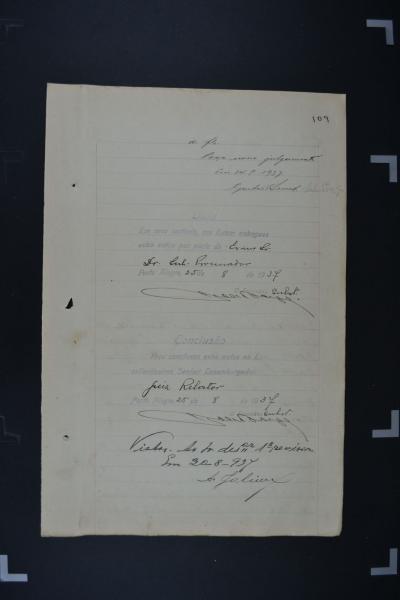 109
Para novo julgamento
Em 24.8.1937.
Data
Em meu cartorio, me foram entregues
estes autos por parte do Exmo Sr.
Dr. Sub. Procurador
Porto Alegre, 25 de 8 de 1937
Subst.
Conclusão
Faço conclusos estes autos ao E
cellentissimo Senhor Desembargador
Juiz Relator
Porto Alegre 25 de 8 de 1937
Subst.
Vistos. Ao sr. des. 1º revisor
Em 30-8-937